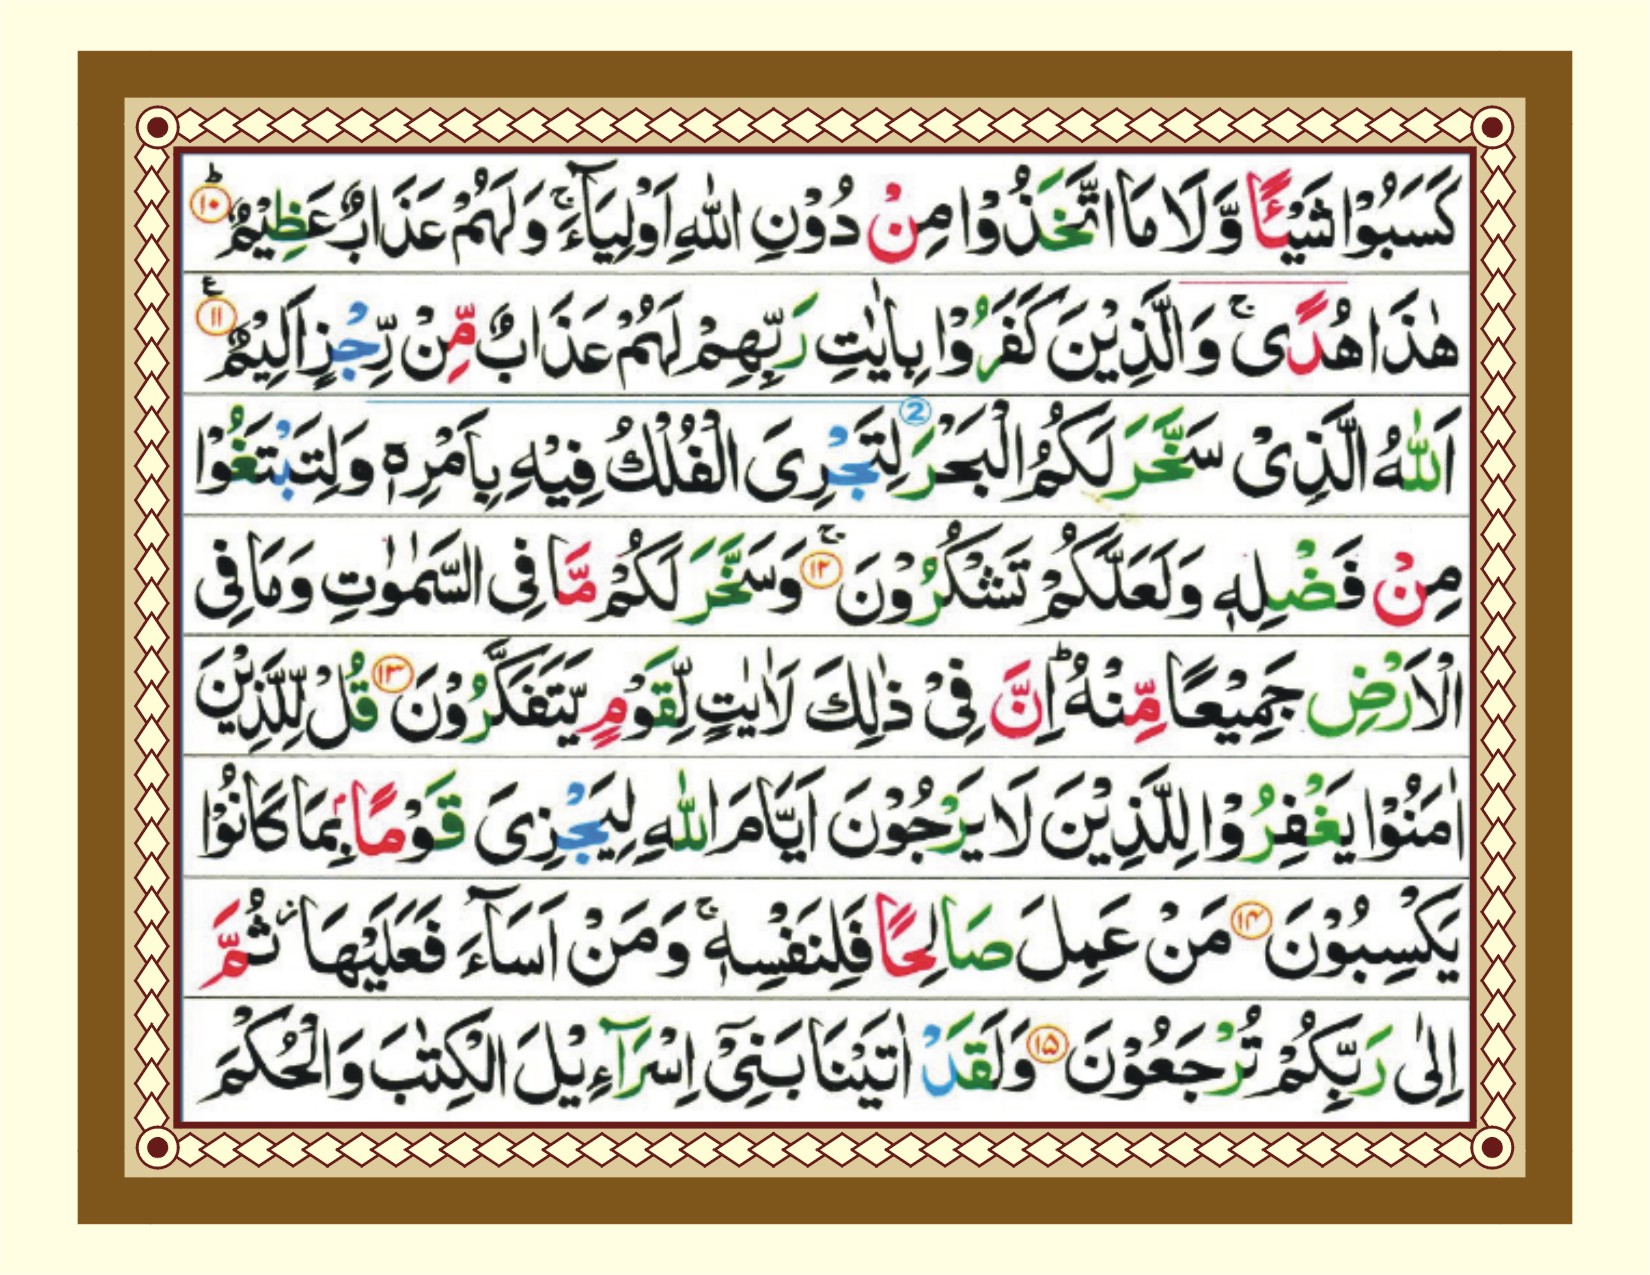 كَسَبُوْا شَيْـًٔا وَّلَا مَا اتَّخَذُوْا مِنْ دُوْنِ اللّٰهِ اَوْلِيَآءَ ۚ وَلَهُمْ عَذَابٌ عَظِيْمٌ ؕ ۱۰
هٰذَا هُدًى ۚ وَالَّذِيْنَ كَفَرُوْا بِاٰيٰتِ رَبِّهِمْ لَهُمْ عَذَابٌ مِّنْ رِّجْزٍ اَلِيْمٌ ۱۱ ع
اَللّٰهُ الَّذِىْ سَخَّرَ لَكُمُ الْبَحْرَ 2 لِتَجْرِىَ الْفُلْكُ فِيْهِ بِاَمْرِهٖ وَلِتَبْتَغُوْا
مِنْ فَضْلِهٖ وَلَعَلَّكُمْ تَشْكُرُوْنَ ۚ ۱۲ وَسَخَّرَ لَكُمْ مَّا فِى السَّمٰوٰتِ وَمَا فِى
الْاَرْضِ جَمِيْعًا مِّنْهُ ؕ اِنَّ فِىْ ذٰلِكَ لَاٰيٰتٍ لِّقَوْمٍ يَّتَفَكَّرُوْنَ ۱۳ قُلْ لِّلَّذِيْنَ
اٰمَنُوْا يَغْفِرُوْا لِلَّذِيْنَ لَا يَرْجُوْنَ اَيَّامَ اللّٰهِ لِيَجْزِىَ قَوْمًۢا بِمَا كَانُوْا
يَكْسِبُوْنَ ۱۴ مَنْ عَمِلَ صَالِحًا فَلِنَفْسِهٖ ۚ وَمَنْ اَسَآءَ فَعَلَيْهَا ز ثُمَّ
اِلٰى رَبِّكُمْ تُرْجَعُوْنَ ۱۵ وَلَقَدْ اٰتَيْنَا بَنِىْٓ اِسْرَآءِيْلَ الْكِتٰبَ وَالْحُكْمَ